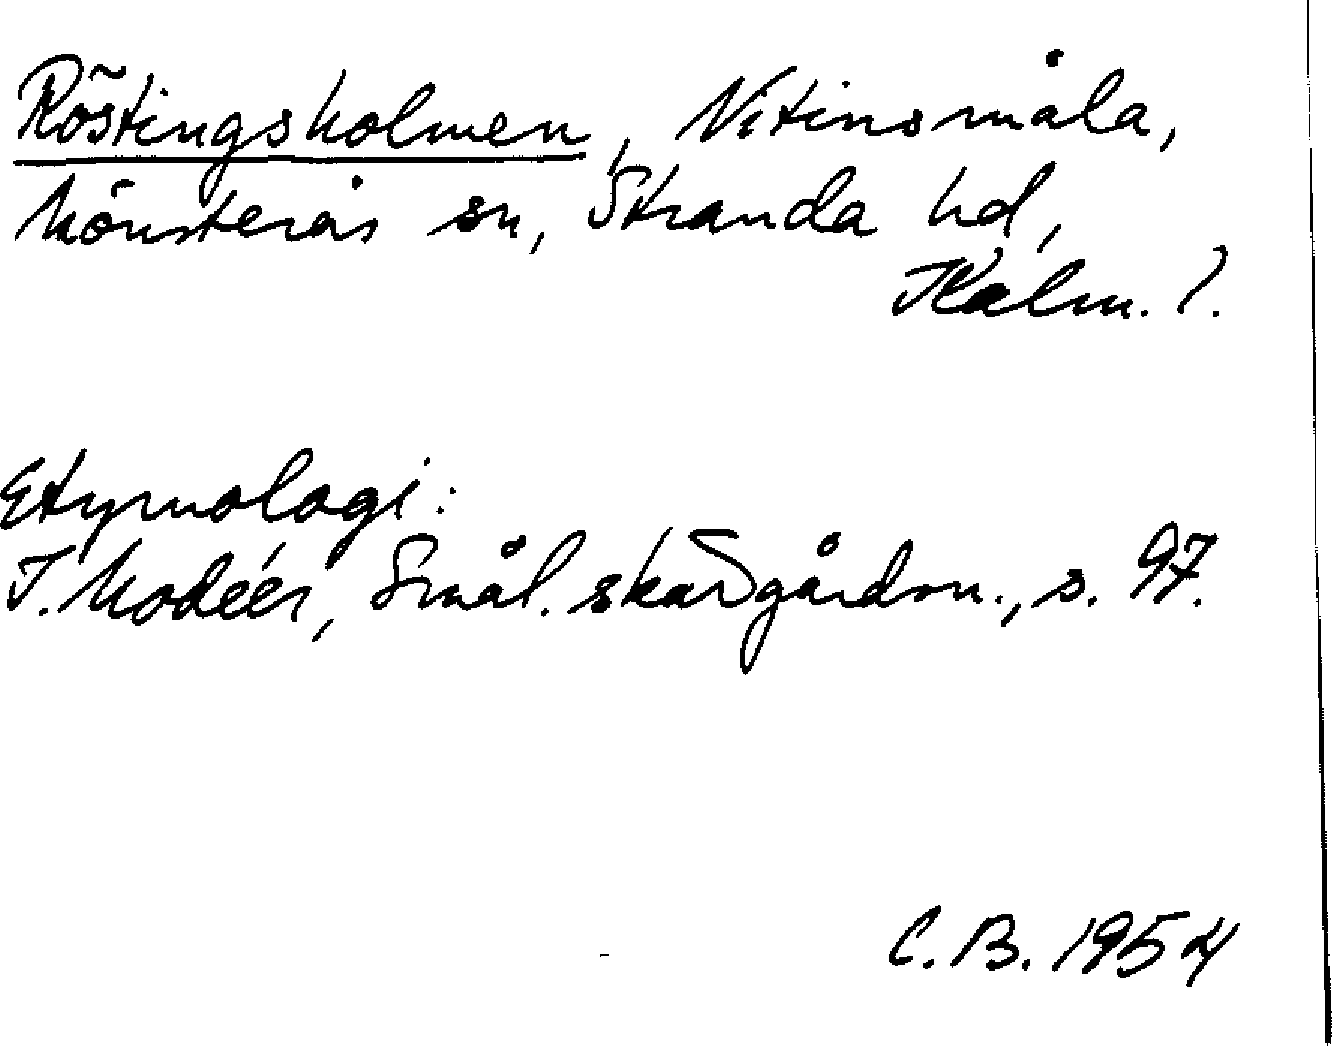 Röstingsholmen, Nitinsmåla,
Mönsterås sn, Stranda hd,
Kalm. l.
Etymologi:
I. Modéer, Smål. skärgårdsn., s. 97.
C. B. 1954